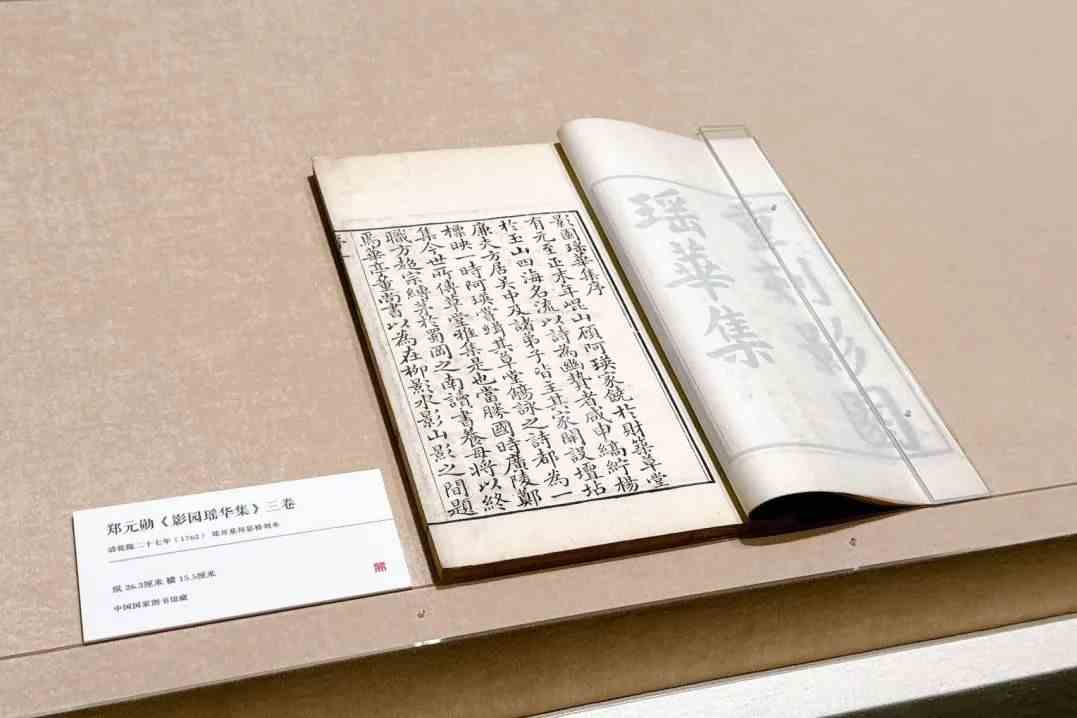 重刊影園
瑶華集
影園瑤華集序
有元至正末年崐山顧阿瑛家饒於財築草堂
於玉山四海名流以詩為幽贄者咸申縞紵楊
廉夫方居吴中及諸弟子皆主其家開設壇坫
標映一時阿瑛嘗緝其草堂觴詠之詩都為一
集今世所傳草堂雅集是也當勝國時廣陵鄭
職方超宗縛於蜀岡之南讀書養母將以終
焉華亭董尚書以為在柳影水影山影之間題
郑元勋《影园瑶华集》三卷
清乾隆二十七年（1762） 拜影楼刻本
纵 26.3厘米 横 15.5厘米
中国国家图书馆藏